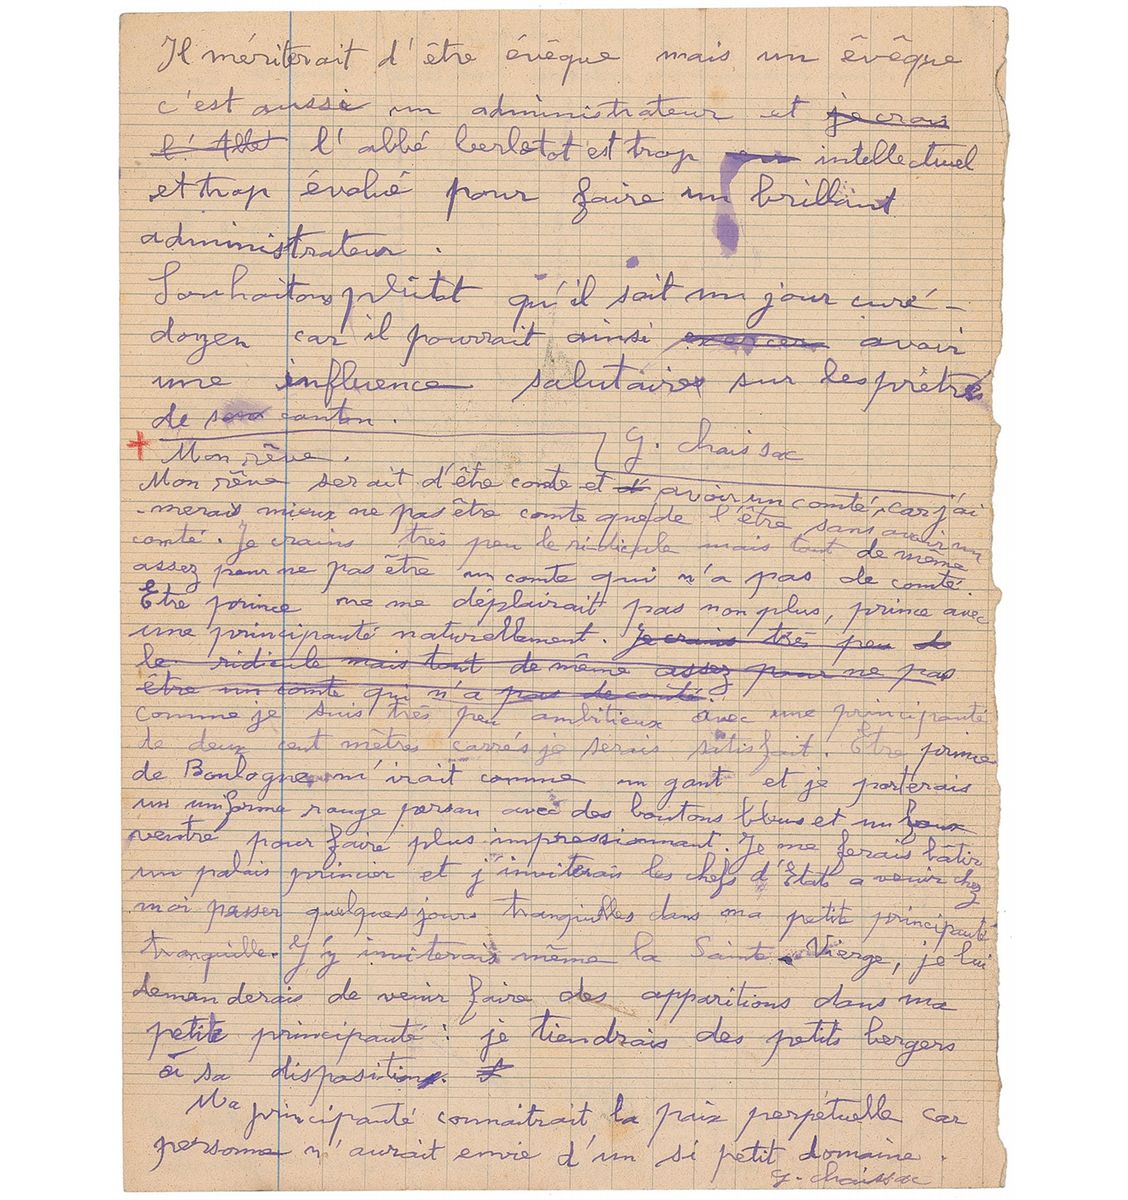 Il mériterait d'être évêque mais un évêque
c'est aussi un administrateur et je crois
l'Abbé l'abbé berlotot est trop intellectuel
et trop évolué pour faire un brillant
administrateur.
Souhaitons plûtot qu'il soit un jour curé-
doyen car il pourrait ainsi exercer avoir
une influence salutaire sur les prêtres
de son canton.
G. Chaissac
+ Mon rêve.
Mon rêve serait d'être comte et d' avoir un comté, car j'ai-
-merais mieux ne pas être comte que de l'être sans avoir un
comté. Je crains très peu le ridicule mais tout de même
assez pour ne pas être un comte qui n'a pas de comté.
Etre prince ne me déplairait pas non plus, prince avec
une principauté naturellement. Je crains très peu de
le ridicule mais tout de même assez pour ne pas
être un comte qui n'a pas de comté.
comme je suis très peu ambitieux avec une principauté
de deux cent mètres carrés je serais satisfait. Etre prince
de Boulogne m'irait comme un gant et je porterais
un uniforme rouge ponceau avec des boutons bleus et un faux
ventre pour faire plus impressionnant. Je me ferais bâtir
un palais princier et j'inviterais les chefs d'Etats a venir chez
moi passer quelques jours tranquilles dans ma petite principauté
tranquille. J'y inviterais même la Sainte Vierge, je lui
demanderais de venir faire des apparitions dans ma
petite principauté : je tiendrais des petits bergers
à sa disposition.
Ma principauté connaitrait la paix perpétuelle car
personne n'aurait envie d'un si petit domaine.
G. Chaissac